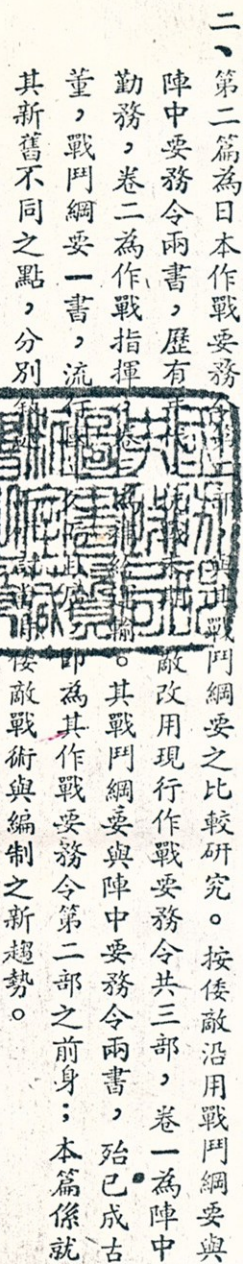 二、第二篇為日本作戰要務 戰鬥綱要之比較研究。按倭敵沿用戰鬥綱要與
陣中要務令兩書，歷有 敵改用現行作戰要務令共三部，卷一為陣中
勤務，卷二為作戰指揮 。其戰鬥綱要與陣中要務令兩書，殆已成古
董，戰鬥綱要一書，流 即為其作戰要務令第二部之前身；本篇係就
其新舊不同之點，分別 倭敵戰術與編制之新趨勢。